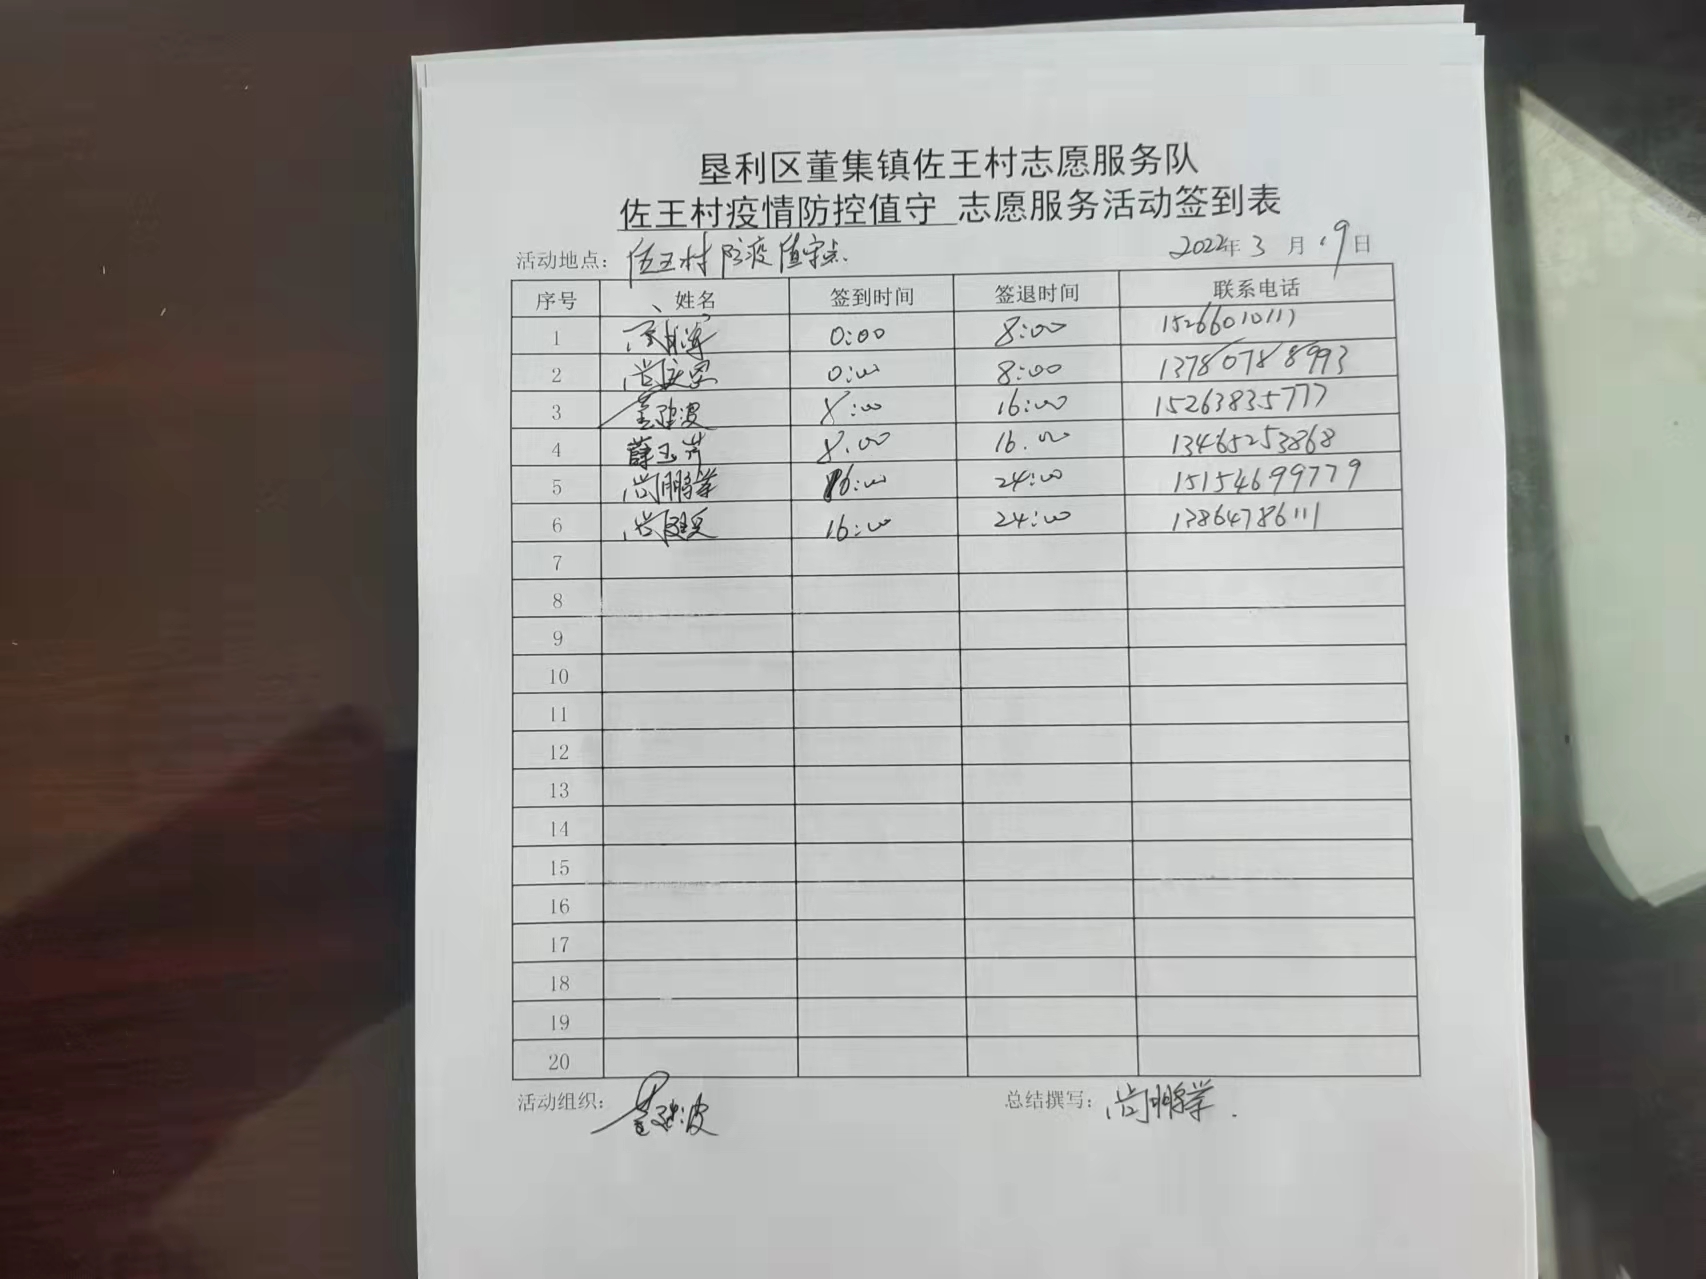 垦利区董集镇佐王村志愿服务队
佐王村疫情防控值守 志愿服务活动签到表
活动地点： 佐王村防疫值守点. 2022年3月19日
序号 姓名 签到时间 签退时间 联系电话
1 0:00 8:00 15266010117
2 尚 0:00 8:00 13780788993
3 波 8:00 16:00 15263835777
4 薛玉芹 8:00 16:00 13465253868
5 尚鹏举 16:00 24:00 15154699779
6 尚 16:00 24:00 13864786111
7
8
9
10
11
12
13
14
15
16
17
18
19
20
活动组织： 波 总结撰写： 尚鹏举.